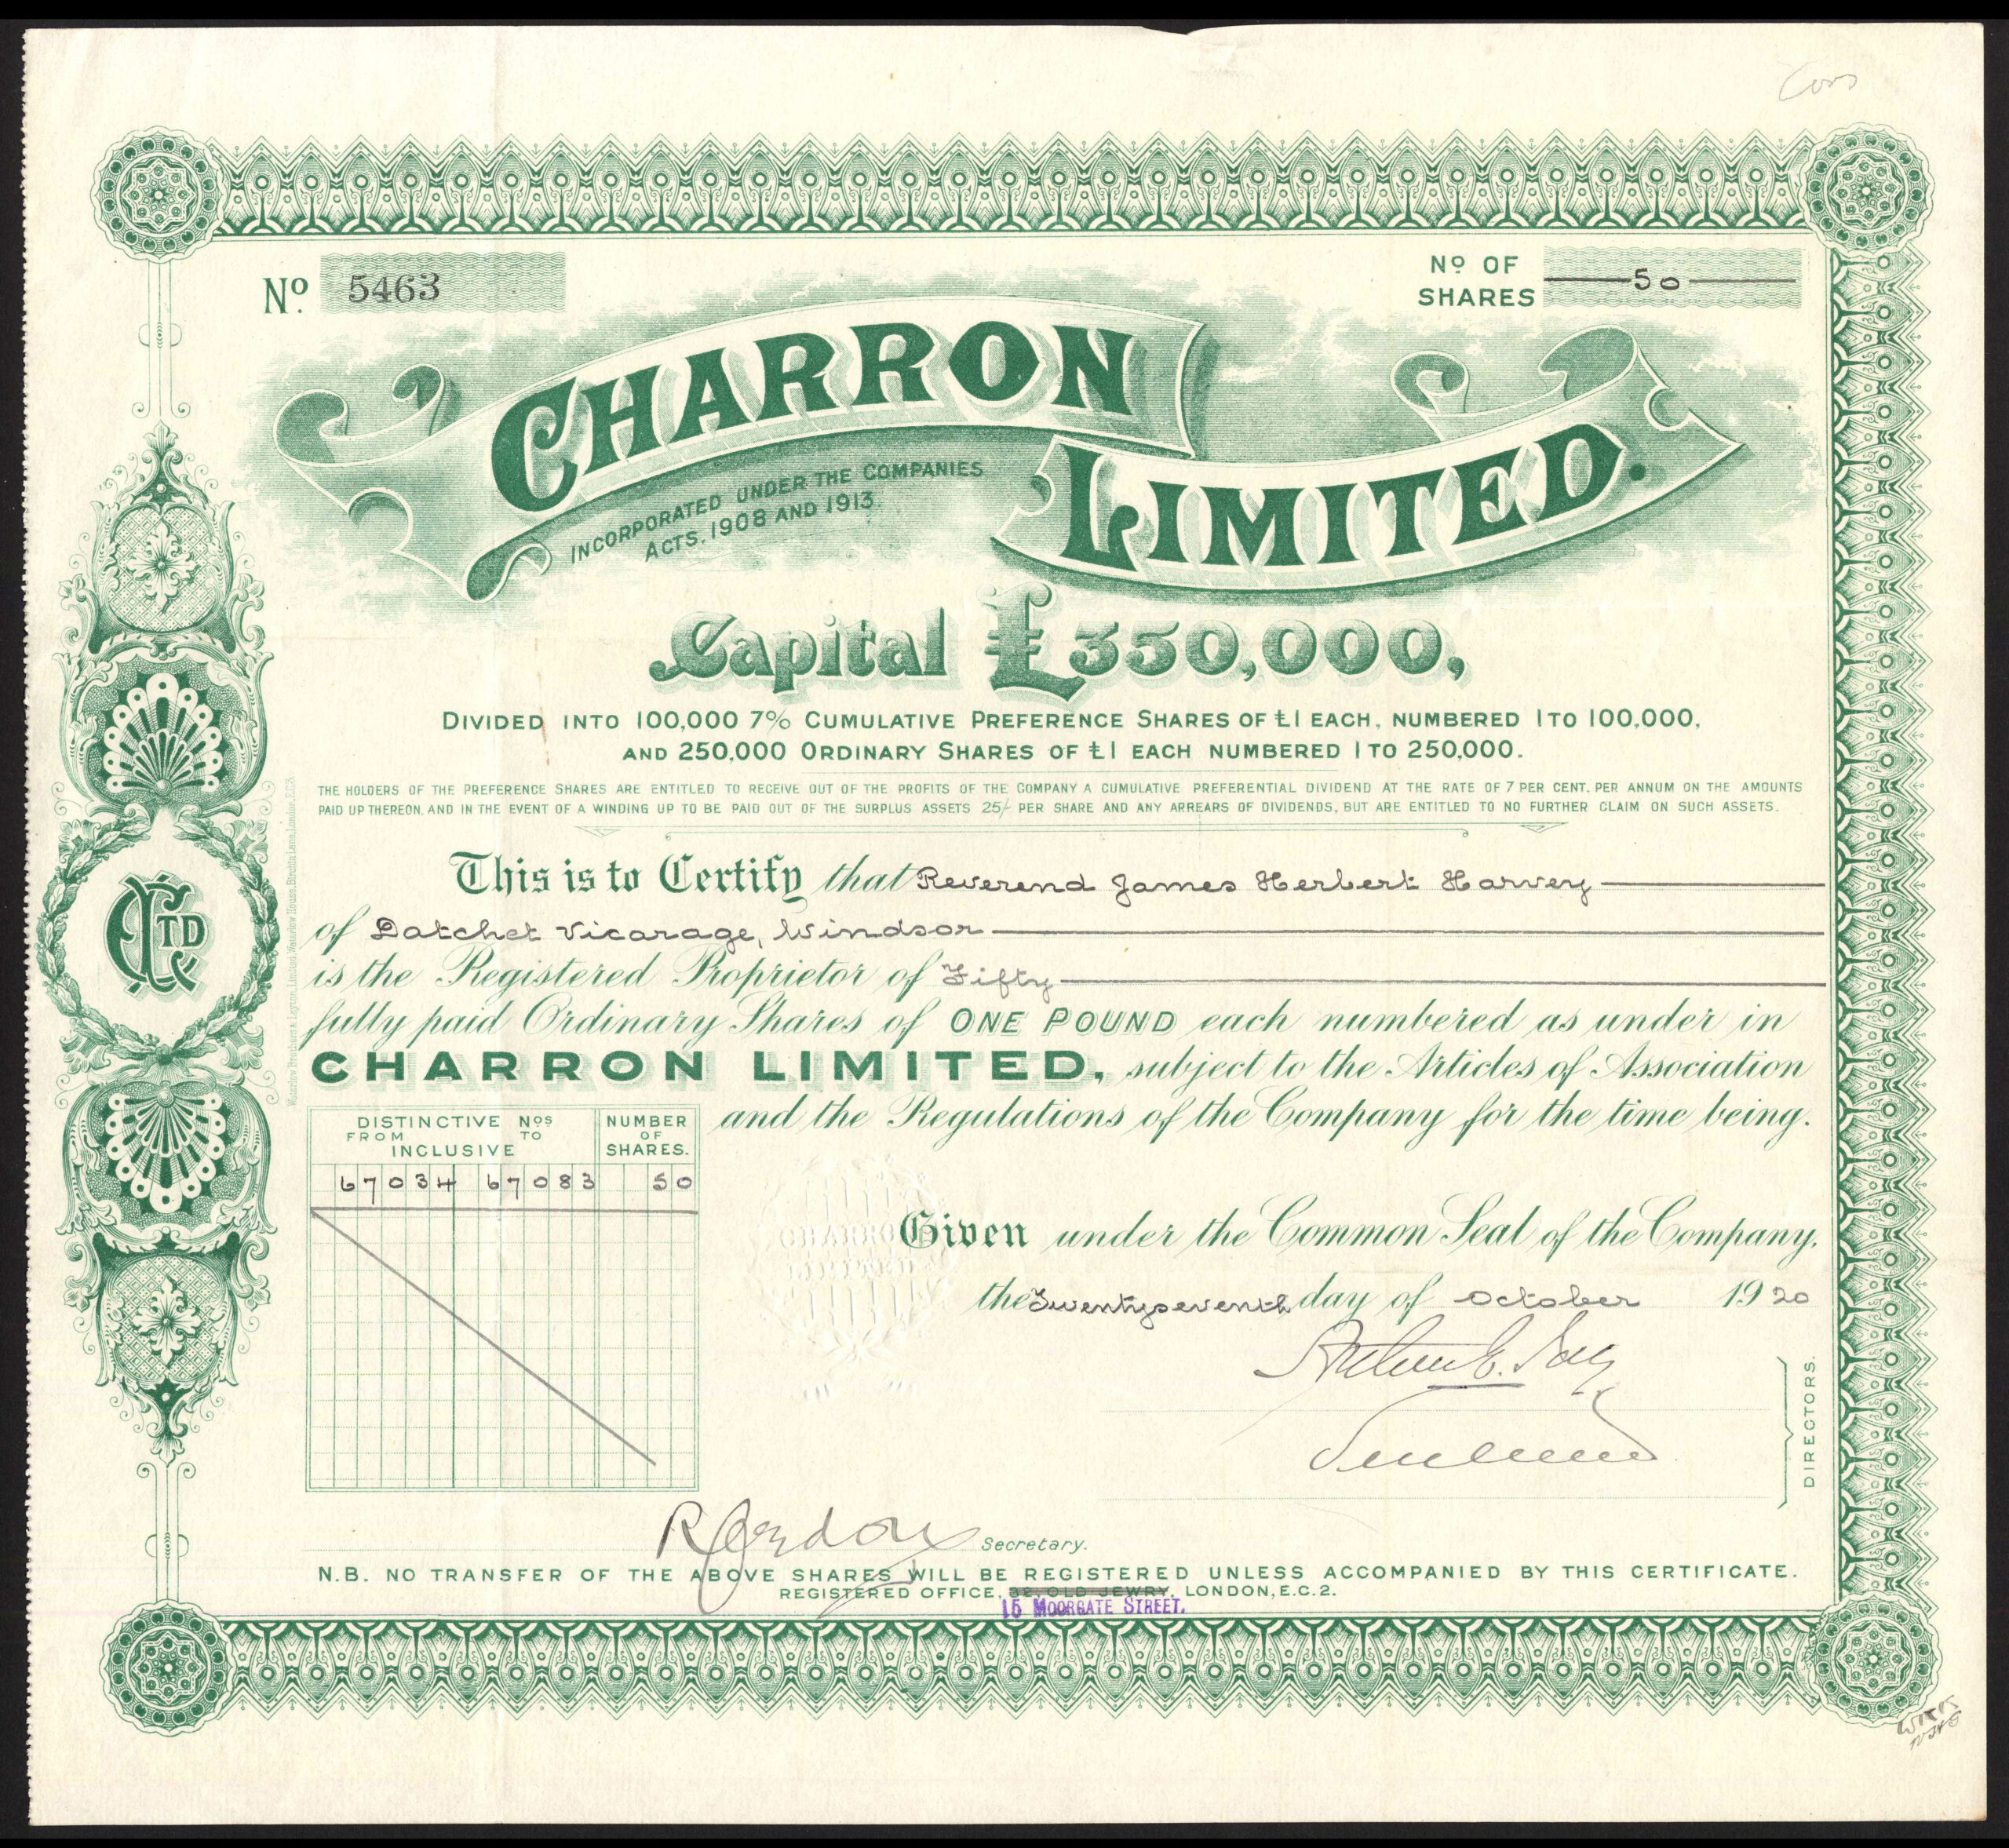 Nº 5463
Nº OF SHARES 50
CHARRON
LIMITED.
INCORPORATED UNDER THE COMPANIES
ACTS. 1908 AND 1913.
Capital £350,000,
DIVIDED INTO 100,000 7% CUMULATIVE PREFERENCE SHARES OF £1 EACH, NUMBERED 1 TO 100,000,
AND 250,000 ORDINARY SHARES OF £1 EACH NUMBERED 1 TO 250,000.
THE HOLDERS OF THE PREFERENCE SHARES ARE ENTITLED TO RECEIVE OUT OF THE PROFITS OF THE COMPANY A CUMULATIVE PREFERENTIAL DIVIDEND AT THE RATE OF 7 PER CENT. PER ANNUM ON THE AMOUNTS
PAID UP THEREON, AND IN THE EVENT OF A WINDING UP TO BE PAID OUT OF THE SURPLUS ASSETS 25/- PER SHARE AND ANY ARREARS OF DIVIDENDS, BUT ARE ENTITLED TO NO FURTHER CLAIM ON SUCH ASSETS.
This is to Certify that Reverend James Herbert Harvey
of Datchet Vicarage, Windsor
is the Registered Proprietor of Fifty
fully paid Ordinary Shares of ONE POUND each numbered as under in
CHARRON LIMITED, subject to the Articles of Association
and the Regulations of the Company for the time being.
CLTD
Waterlow Brothers & Layton, Limited, Waterlow House, Birchin Lane, London, E.C.3.
DISTINCTIVE NOS
FROM TO
INCLUSIVE
NUMBER
OF
SHARES.
67034 67083 50
CHARRON
LIMITED
Given under the Common Seal of the Company,
the Twentyseventh day of October 1920
DIRECTORS.
Secretary.
N.B. NO TRANSFER OF THE ABOVE SHARES WILL BE REGISTERED UNLESS ACCOMPANIED BY THIS CERTIFICATE.
REGISTERED OFFICE, OLD JEWRY, LONDON, E.C.2.
15 MOORGATE STREET,